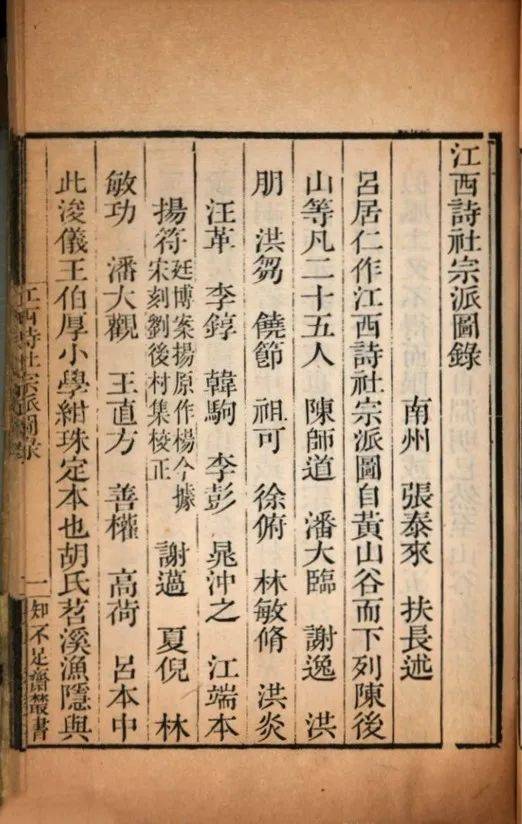 江西詩社宗派圖錄
南州 張泰來 扶長述
呂居仁作江西詩社宗派圖自黃山谷而下列陳後
山等凡二十五人 陳師道 潘大臨 謝逸 洪
朋 洪芻 饒節 祖可 徐俯 林敏脩 洪炎
汪革 李錞 韓駒 李彭 晁沖之 江端本
揚符 廷博案揚原作楊今據宋刻劉後村集校正 謝薖 夏倪 林
敏功 潘大觀 王直方 善權 高荷 呂本中
此浚儀王伯厚小學紺珠定本也胡氏苕溪漁隱與
江西詩社宗派圖录
一
知不足齋叢書